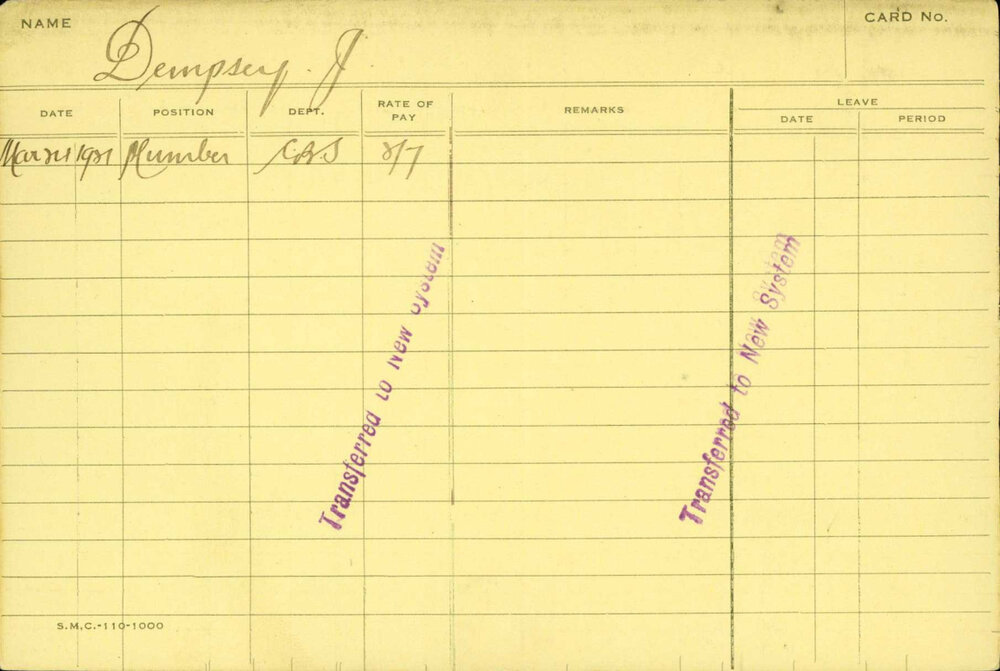 NAME
CARD No.
Dempsey. J.
DATE POSITION DEPT. RATE OF PAY REMARKS LEAVE
DATE PERIOD
Mar 1921 Plumber 
Transferred to New System
Transferred to New System
S.M.C.-110-1000